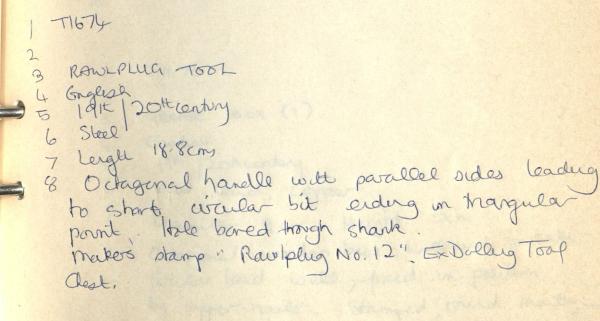 1 T1674
2
3 RAWLPLUG TOOL
4 English
5 19th / 20th century
6 Steel
7 Length 18.8cms
8 Octagonal handle with parallel sides leading
to short, circular bit ending in triangular
point. Hole bored through shank.
Maker's stamp: "Rawlplug No. 12". Ex Dalling Tool
Chest.